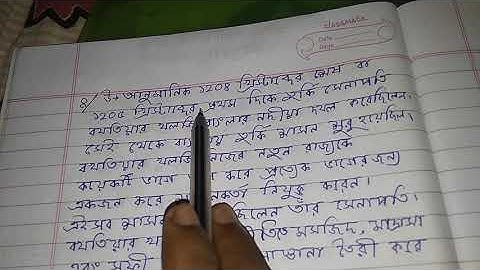 CLASSMATE
Date
Page
৪/ উঃ- আনুমানিক ১২০৪ খ্রিস্টাব্দের শেষ বা
১২০৫ খ্রিস্টাব্দের প্রথম দিকে তুর্কি সেনাপতি
বখতিয়ার খলজি বাংলার নদীয়া দখল করেছিলেন।
সেই থেকে তুর্কি শাসন শুরু হয়েছিল।
বখতিয়ার খলজি নিজের নতুন রাজ্যকে
কয়েকটি ভাগে করে প্রত্যেক ভাগের জন্য
একজন করে নিযুক্ত করেন।
এইসব তার সেনাপতি।
বখতিয়ার মসজিদ, মাদ্রাসা
এবং সুফী তৈরী করে